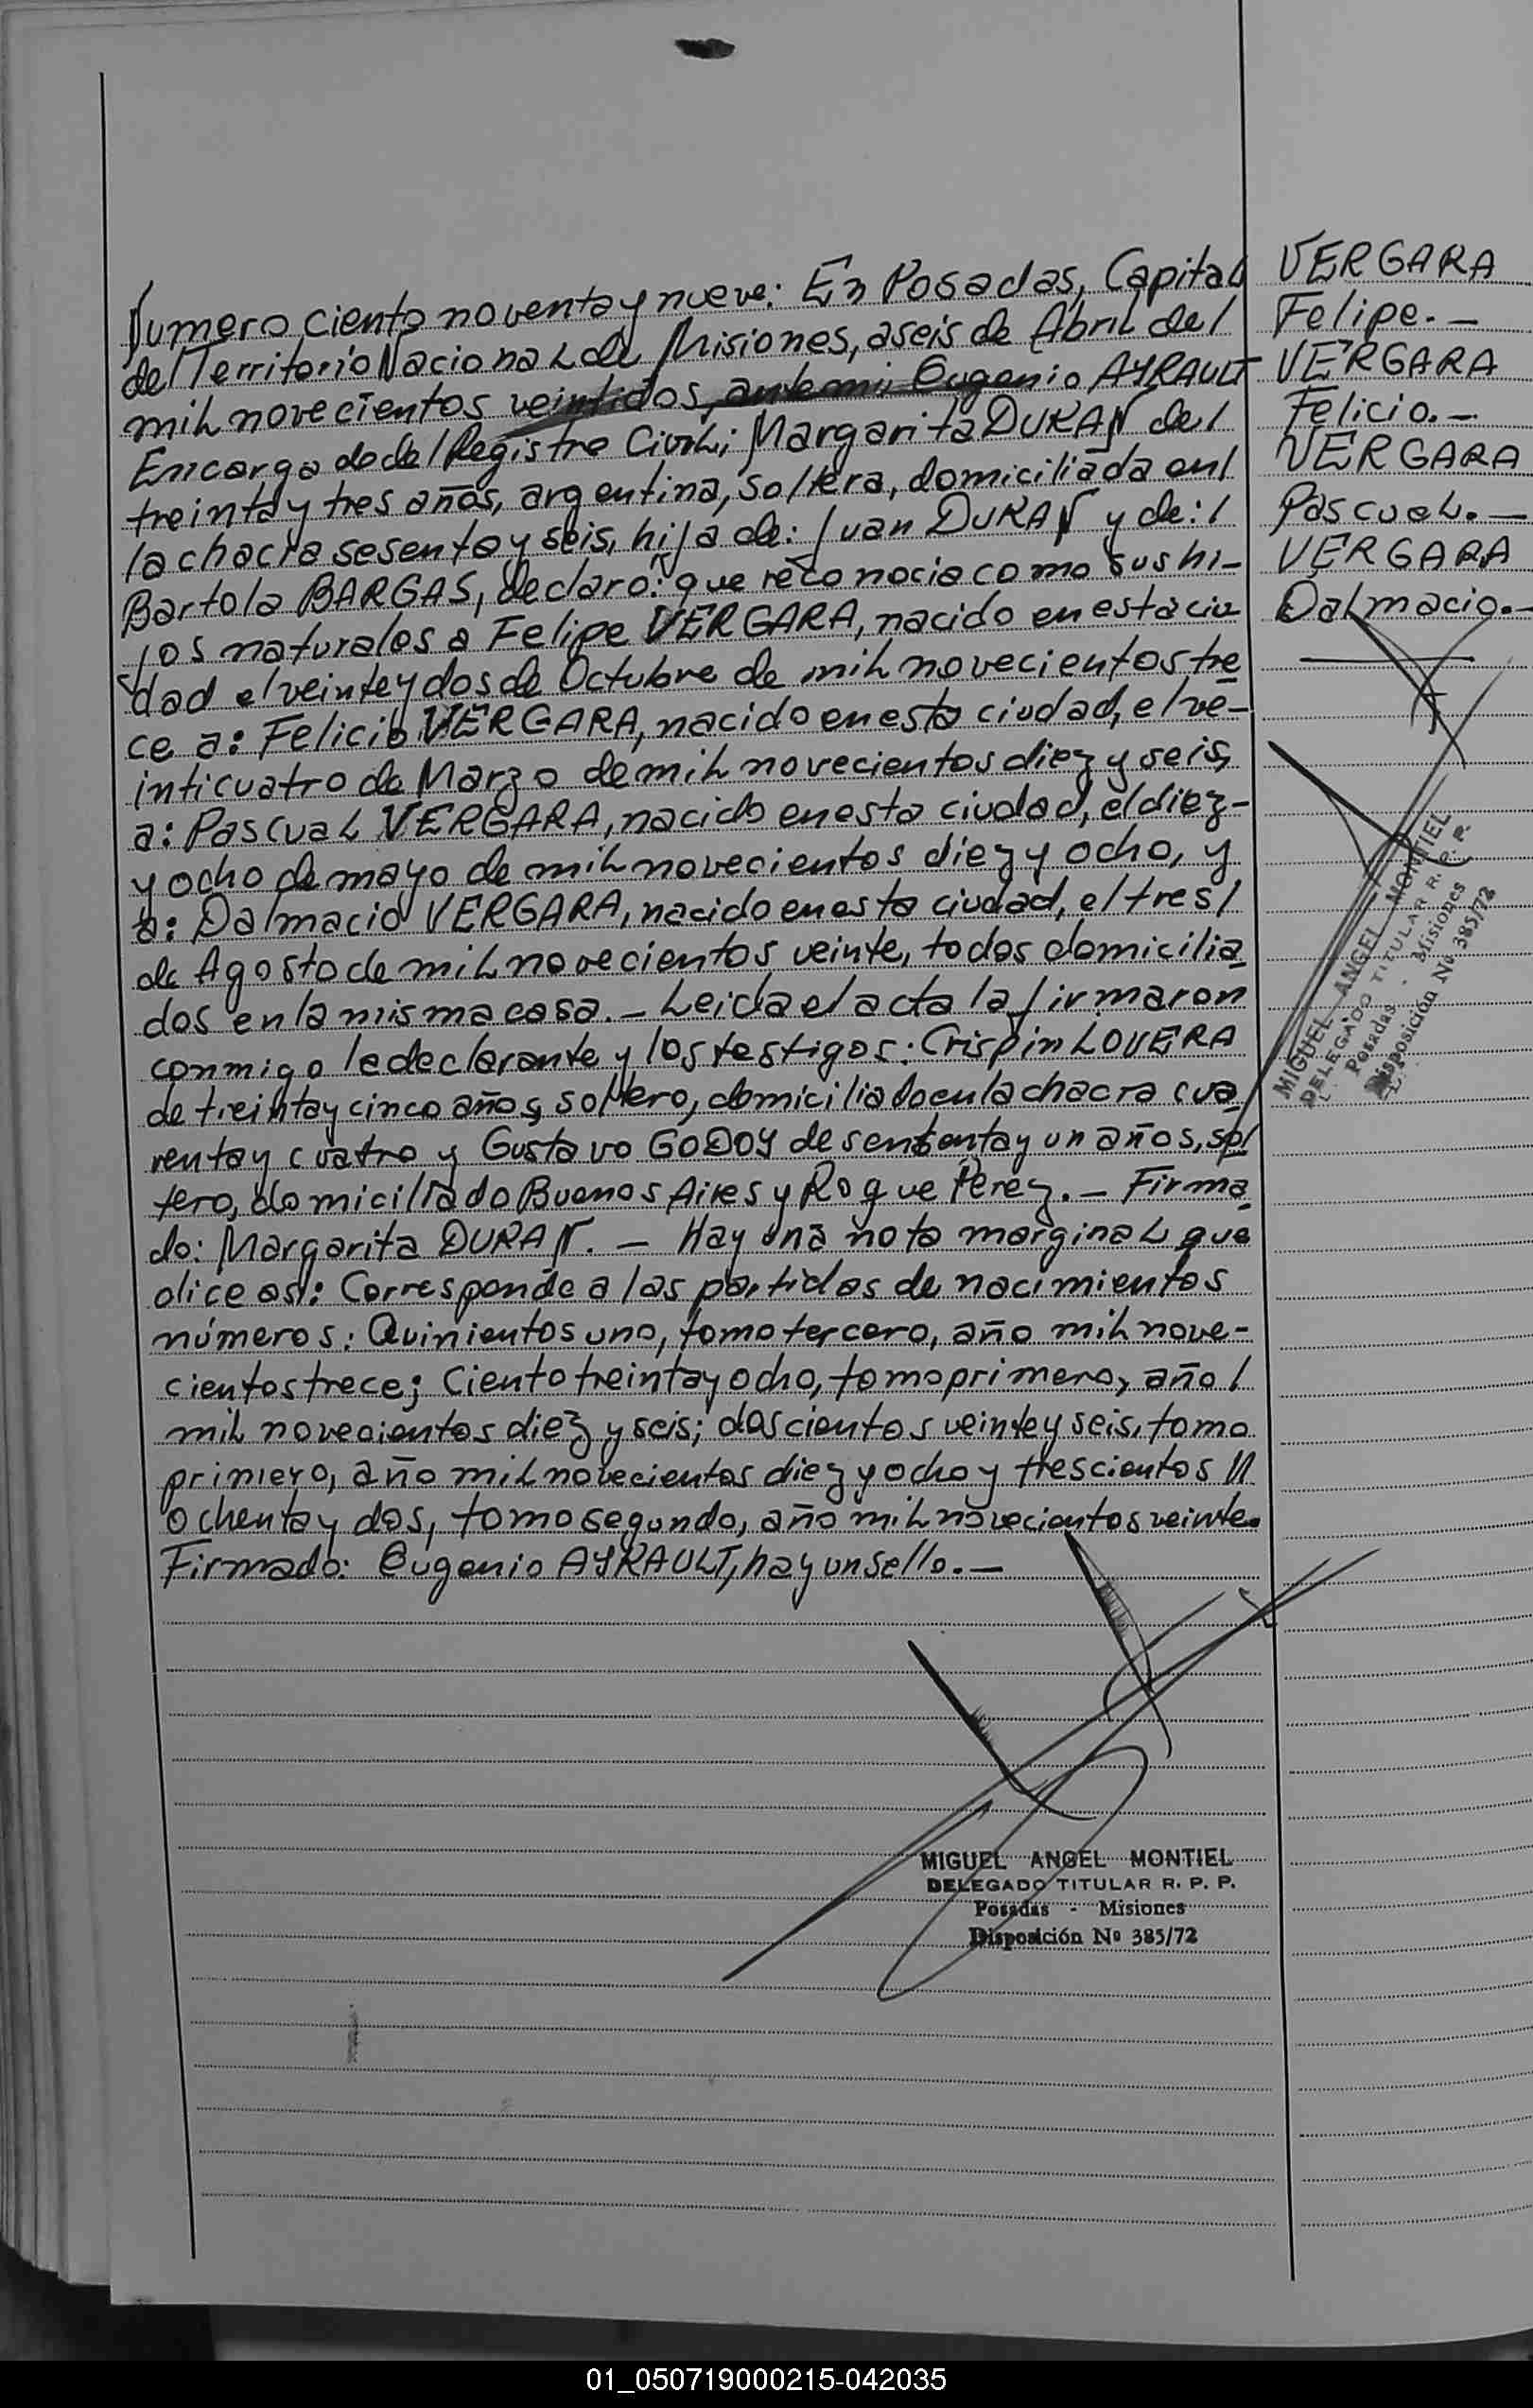 Numero ciento noventa y nueve: En Posadas, Capital
del Territorio Nacional de Misiones, a seis de Abril de/
mil novecientos veintidos, ante mi, Eugenio AYRAULT
Encargado del Registro Civil; Margarita DURAN de/
treinta y tres años, argentina, soltera, domiciliada en/
la chacra sesenta y seis, hija de: Juan DURAN y de:/
Bartola BARGAS, declaro: que reconocia como sus hi-
jos naturales a Felipe VERGARA, nacido en esta ciu
dad el veinte y dos de Octubre de mil novecientos tre
ce a: Felicio VERGARA, nacido en esta ciudad, el ve-
inticuatro de Marzo de mil novecientos diez y seis,
a: Pascual VERGARA, nacido en esta ciudad, el diez-
y ocho de mayo de mil novecientos diez y ocho, y
a: Dalmacio VERGARA, nacido en esta ciudad, el tres/
de Agosto de mil novecientos veinte, todos domicilia
dos en la misma casa.- Leida el acta la firmaron
conmigo la declarante y los testigos: Crispin LOVERA
de treinta y cinco años, soltero, domiciliado en la chacra cua
renta y cuatro y Gustavo GODOY de sententa y un años, sol
tero, domiciliado Buenos Aires y Roque Perez.- Firma
do: Margarita DURAN.- Hay una nota marginal que
dice asi: Corresponde a las partidas de nacimientos
números: Quinientos uno, tomo tercero, año mil nove-
cientos trece; Ciento treinta y ocho, tomo primero, año/
mil novecientos diez y seis; doscientos veinte y seis, tomo
primero, año mil novecientos diez y ocho y trescientos //
ochenta y dos, tomo segundo, año mil novecientos veinte.
Firmado: Eugenio AYRAULT, hay un sello.-
MIGUEL ANGEL MONTIEL
DELEGADO TITULAR R. P. P.
Posadas - Misiones
Disposición Nº 385/72
VERGARA
Felipe.-
VERGARA
Felicio.-
VERGARA
Pascual.-
VERGARA
Dalmacio.-
MIGUEL ANGEL MONTIEL
DELEGADO TITULAR R. P. P.
Posadas - Misiones
Disposición Nº 385/72
01_050719000215-042035